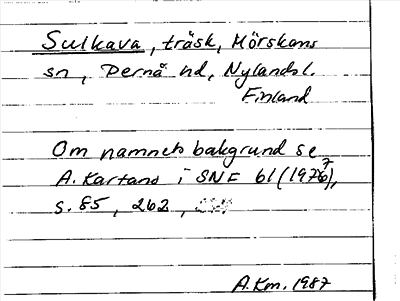 Sulkava, träsk, Mörskoms
sn, Pernå hd, Nylands l.
Finland
Om namnets bakgrund se
A. Kartano i SNF 61 (1977),
s. 85, 262,
A.Km. 1987